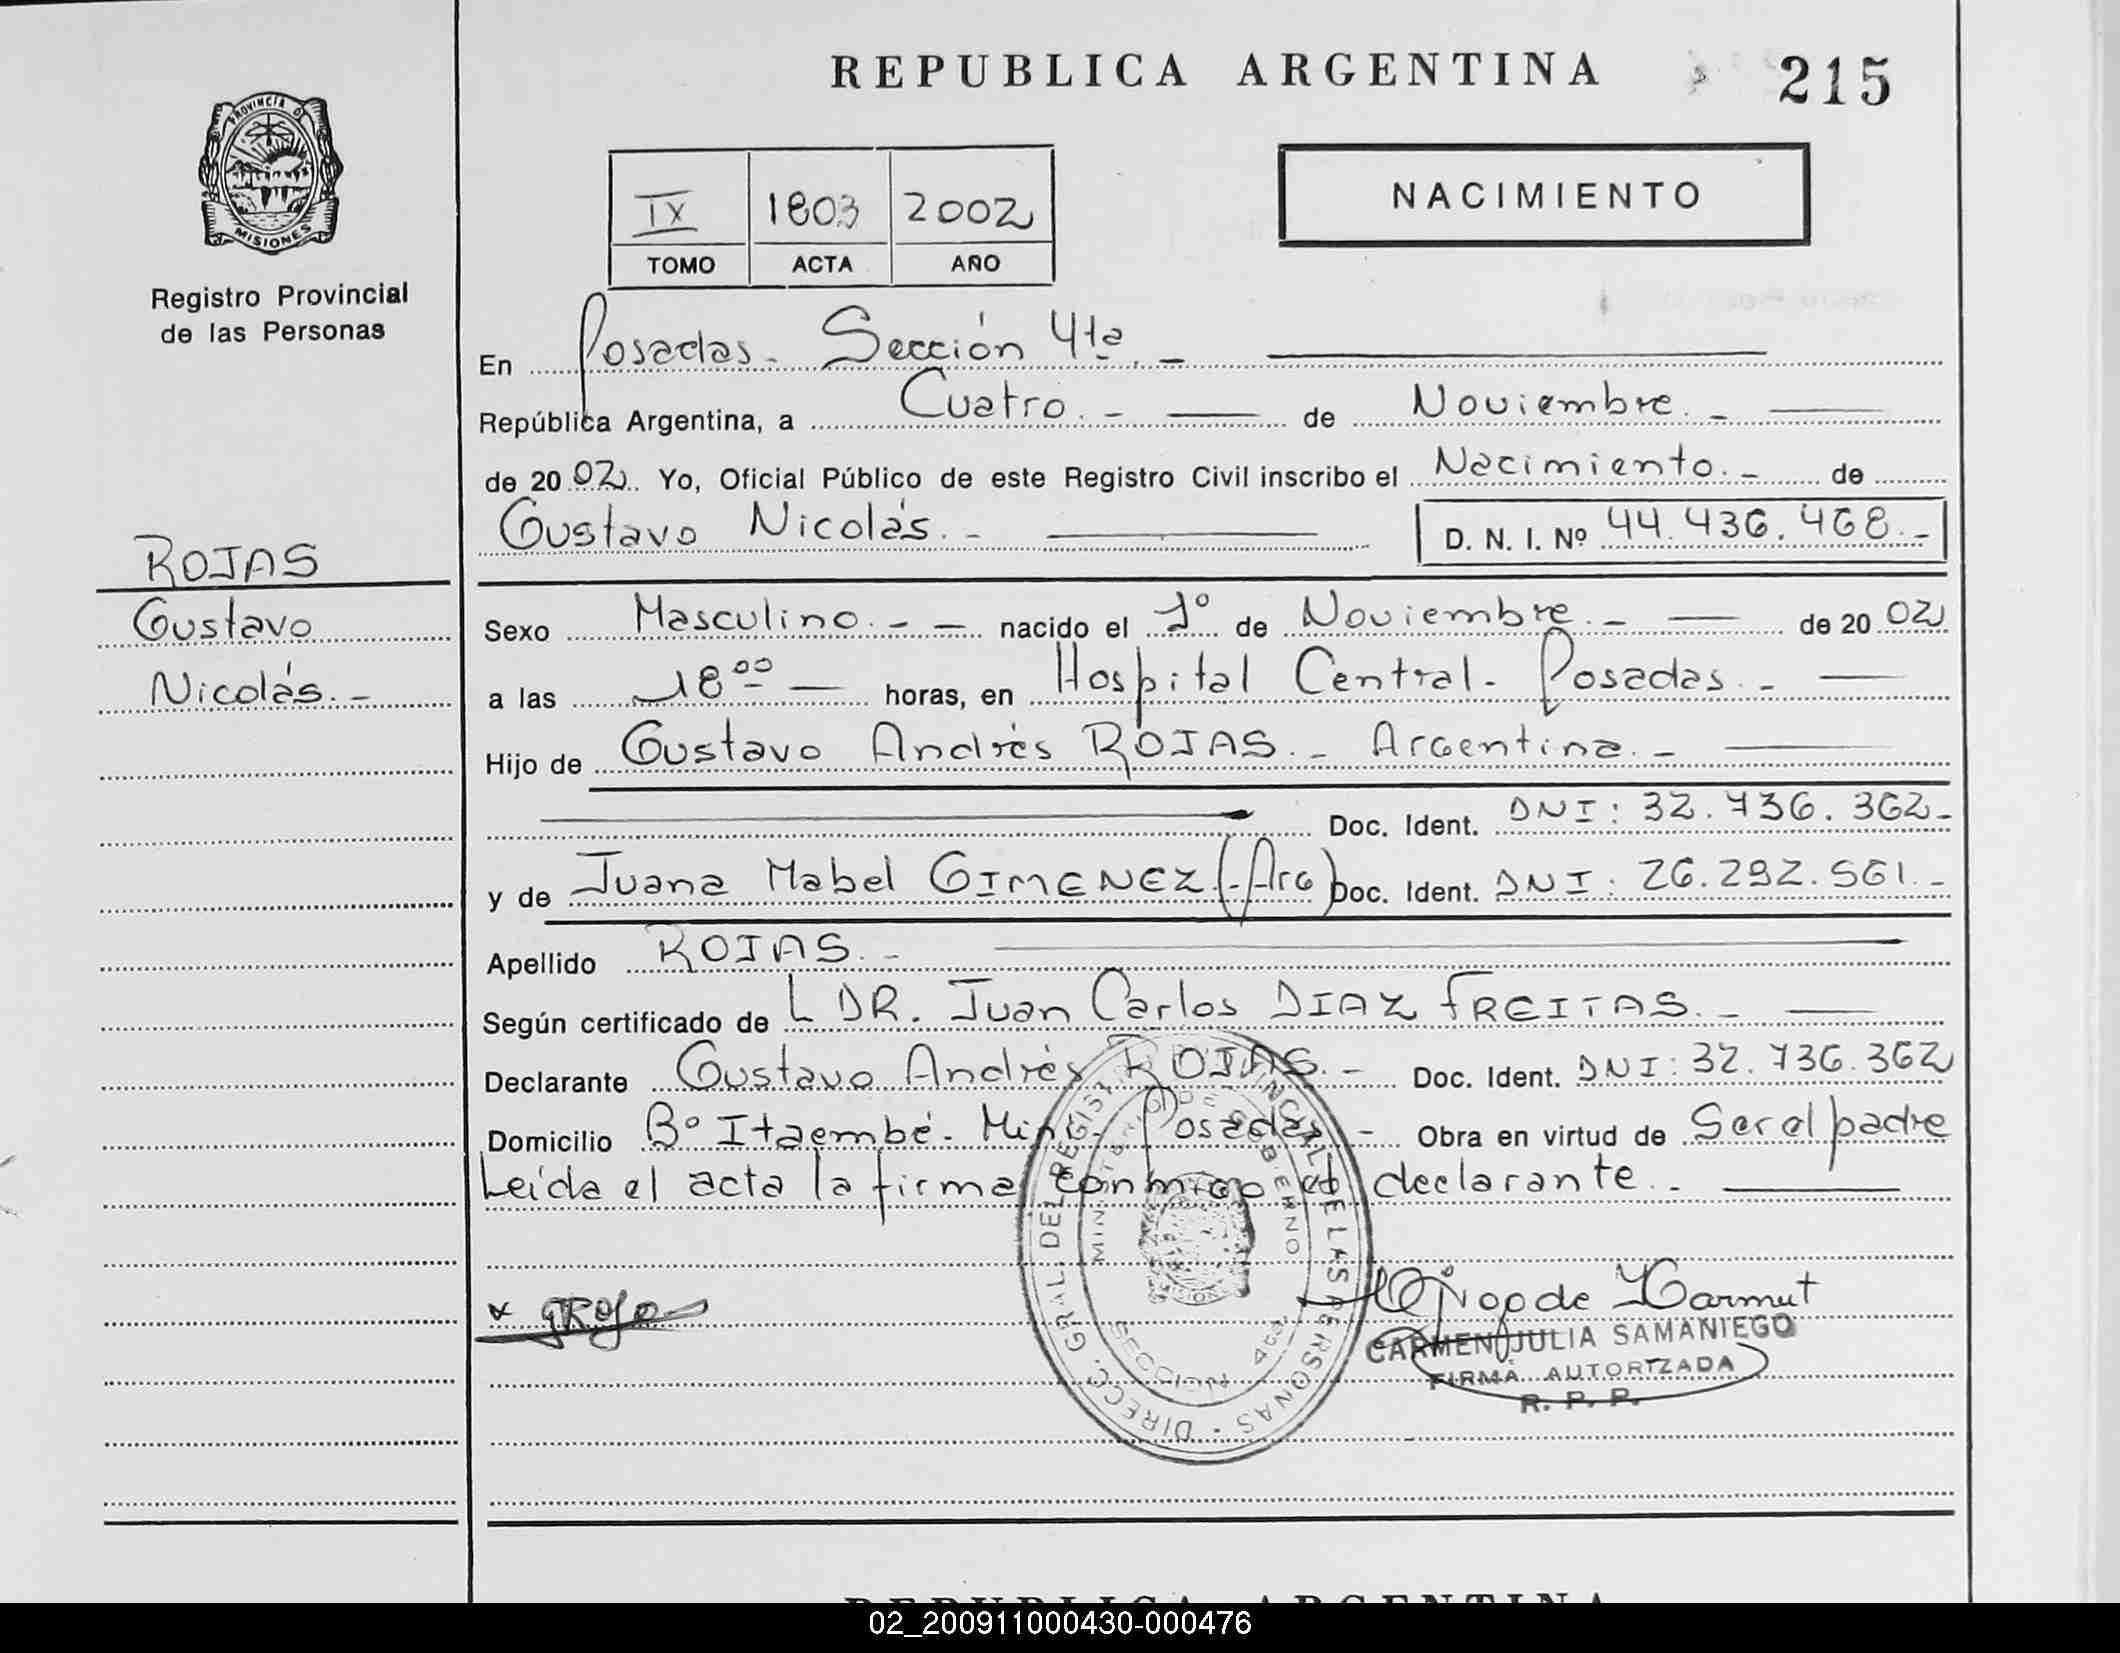 REPUBLICA ARGENTINA 215
PROVINCIA DE
MISIONES
Registro Provincial
de las Personas
IX 1803 2002
TOMO ACTA AÑO
NACIMIENTO
En Posadas. Sección 4ta. -
República Argentina, a Cuatro. - de Noviembre. -
de 20 02. Yo, Oficial Público de este Registro Civil inscribo el Nacimiento. - de
Gustavo Nicolás. - D. N. I. Nº 44.436.468. -
ROJAS
Gustavo
Nicolás. -
Sexo Masculino. - - nacido el 1º de Noviembre. - de 20 02
a las 18 00 - horas, en Hospital Central. Posadas. -
Hijo de Gustavo Andrés ROJAS. - Argentina. -
Doc. Ident. DNI: 32.736.362-
y de Juana Mabel GIMENEZ (Arg) Doc. Ident. DNI: 26.292.561. -
Apellido ROJAS. -
Según certificado de L DR. Juan Carlos DIAZ FREITAS. -
Declarante Gustavo Andrés ROJAS. - Doc. Ident. DNI: 32.736.362
Domicilio Bº Itaembé. Miní. Posadas - Obra en virtud de Ser el padre
Leída el acta la firma conmigo el declarante. -
DIRECC. GRAL. DEL REGISTRO PROVINCIAL DE LAS PERSONAS -
MINISTERIO DE GOBIERNO
SECCION 4ta
CARMEN JULIA SAMANIEGO
FIRMA AUTORIZADA
R. P. P.
REPUBLICA ARGENTINA
02_200911000430-000476